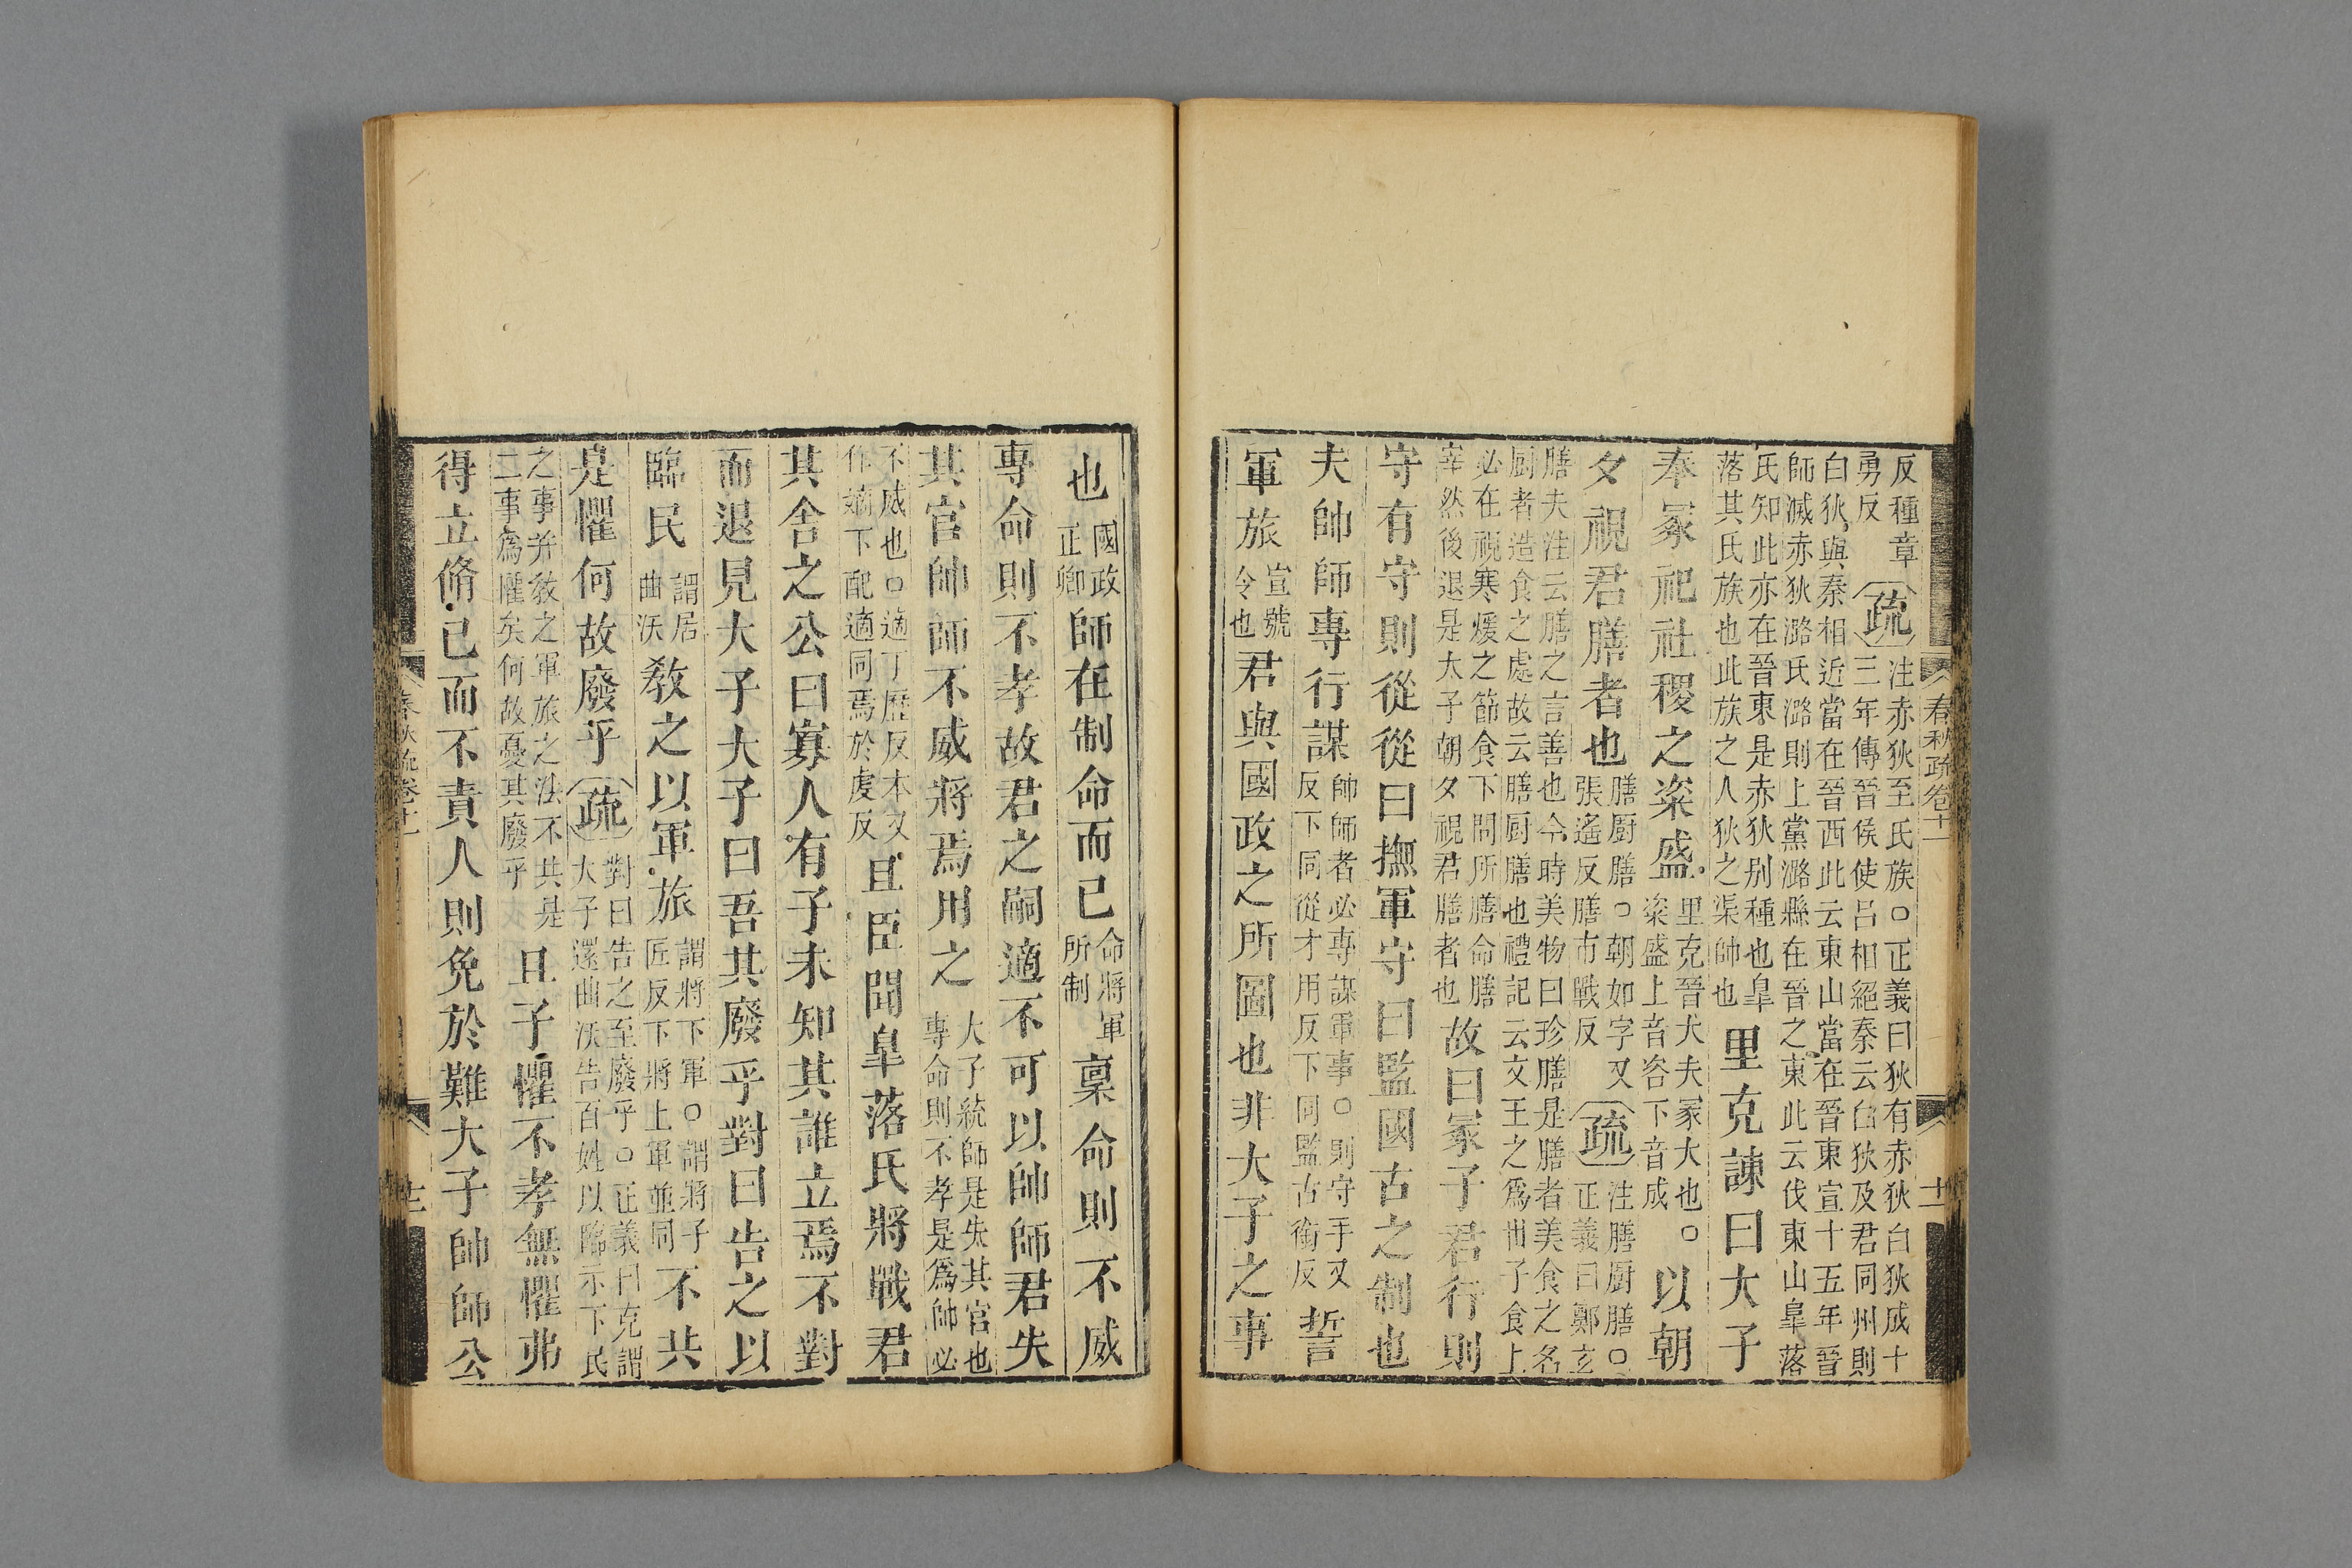 春秋疏卷十一
十一
反種章
勇反
疏
注赤狄至氏族○正義曰狄有赤狄白狄成十
三年傳晉侯使呂相絕秦云白狄及君同州則
白狄與秦相近當在晉西此云東山當在晉東宣十五年晉
師滅赤狄潞氏潞則上黨潞縣在晉之東此云伐東山臯落
氏知此亦在晉東是赤狄別種也臯
落其氏族也此族之人狄之渠帥也
里克諫曰大子
奉冢祀社稷之粢盛
里克晉大夫冢大也○
粢盛上音咨下音成
以朝
夕視君膳者也
膳厨膳○朝如字又
張遙反膳市戰反
疏
注膳厨膳○
正義曰鄭玄
膳夫注云膳之言善也今時美物曰珍膳是膳者美食之名
厨者造食之處故云膳厨膳也禮記云文王之爲世子食上
必在視寒煖之節食下問所膳命膳
宰然後退是大子朝夕視君膳者也
故曰冢子君行則
守有守則從從曰撫軍守曰監國古之制也
夫帥師專行謀
帥師者必專謀軍事○則守手又
反下同從才用反下同監古銜反
誓
軍旅
宣號
令也
君與國政之所圖也非大子之事
也
國政
正卿
師在制命而已
命將軍
所制
稟命則不威
專命則不孝故君之嗣適不可以帥師君失
其官帥師不威將焉用之
大子統師是失其官也
專命則不孝是爲帥必
不威也○適丁歷反本又
作嫡下配適同焉於虔反
且臣聞臯落氏將戰君
其舍之公曰寡人有子未知其誰立焉不對
而退見大子大子曰吾其廢乎對曰告之以
臨民
謂居
曲沃
教之以軍旅
謂將下軍○謂將子
匠反下將上軍並同
不共
是懼何故廢乎
疏
對曰告之至廢乎○正義曰克謂
大子還曲沃告百姓以臨示下民
之事并敎之軍旅之法不共是
二事爲懼矣何故憂其廢乎
且子懼不孝無懼弗
得立脩己而不責人則免於難大子帥師公
春秋疏卷十一
十二